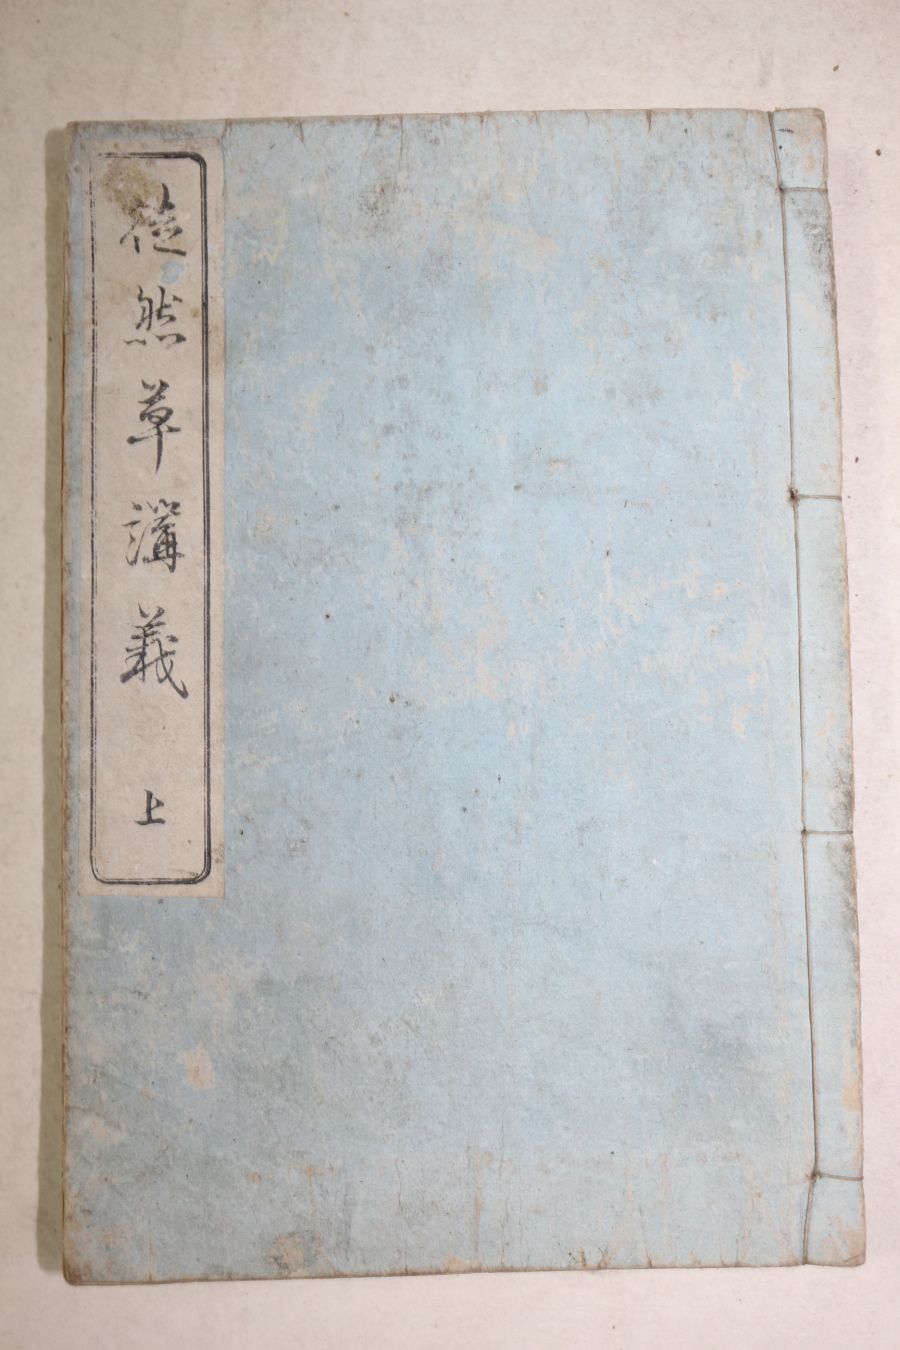 徒然草講義 上